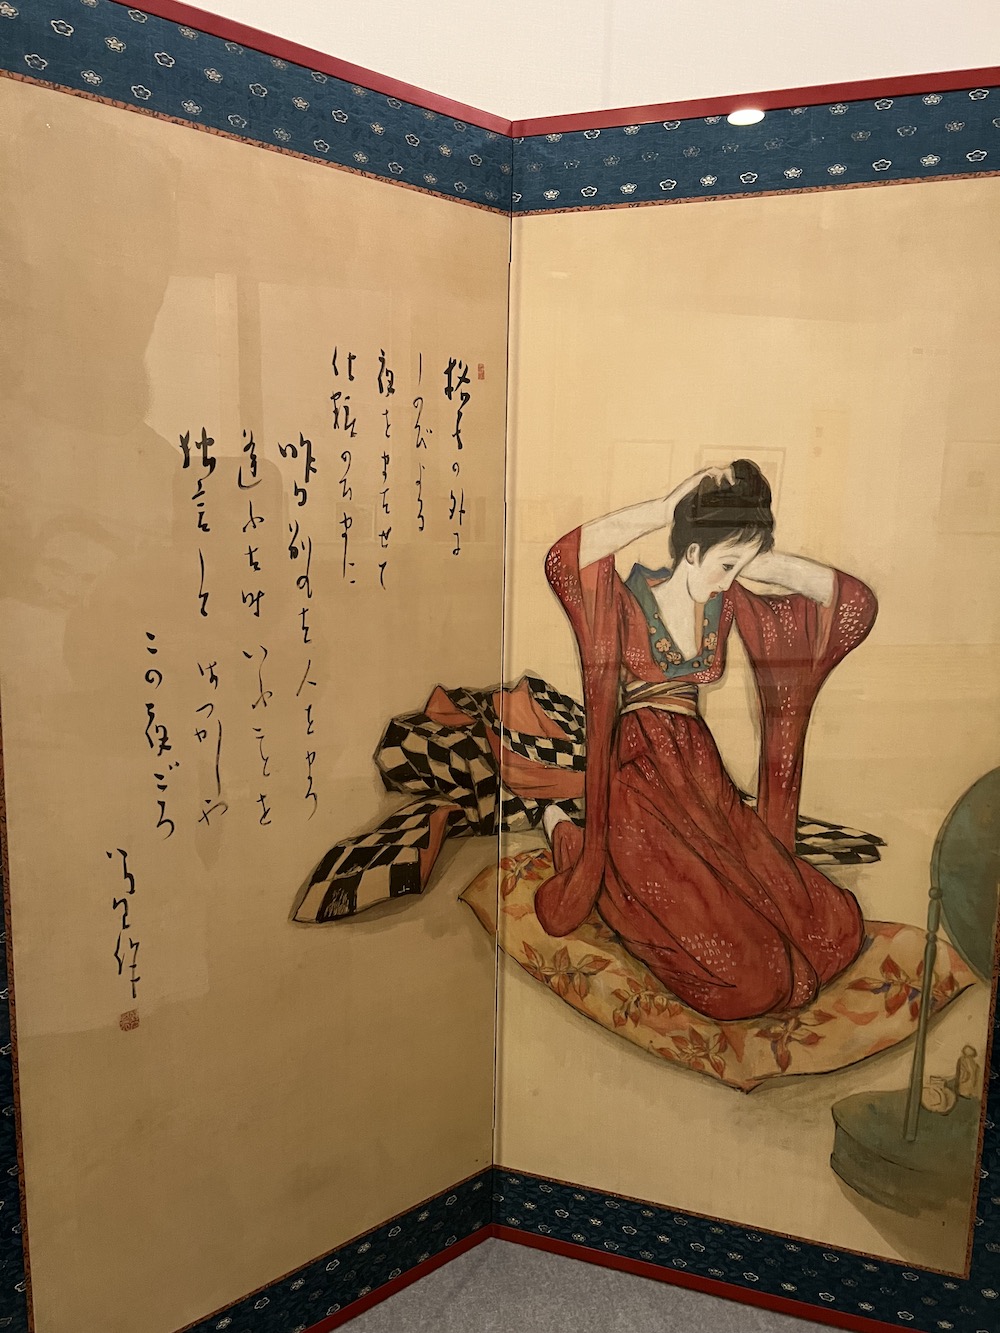 格子の外に
しのびよる
夜をまたせて
化粧の
昨日別れた人をまつ
逢ふた時いふことを
独言して はづかしや
この夜ごろ
作